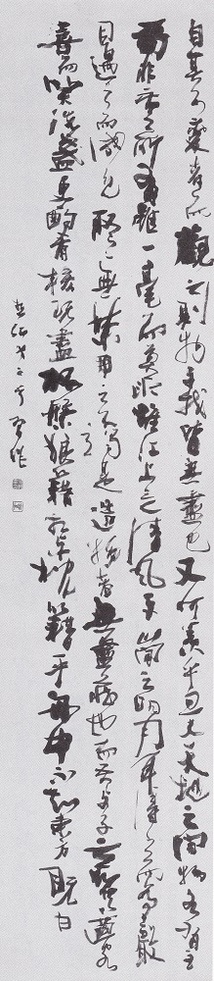 自其不變者而觀之則物與我皆無盡也又何羨乎且夫天地之間物各有主
苟非吾之所有雖一毫而莫取惟江上之清風與山間之明月耳得之而為聲
目遇之而成色取之無禁用之不竭是造物者之無盡藏也而吾與子之所共適客
喜而笑洗盞更酌肴核既盡杯盤狼藉相與枕藉乎舟中不知東方既白